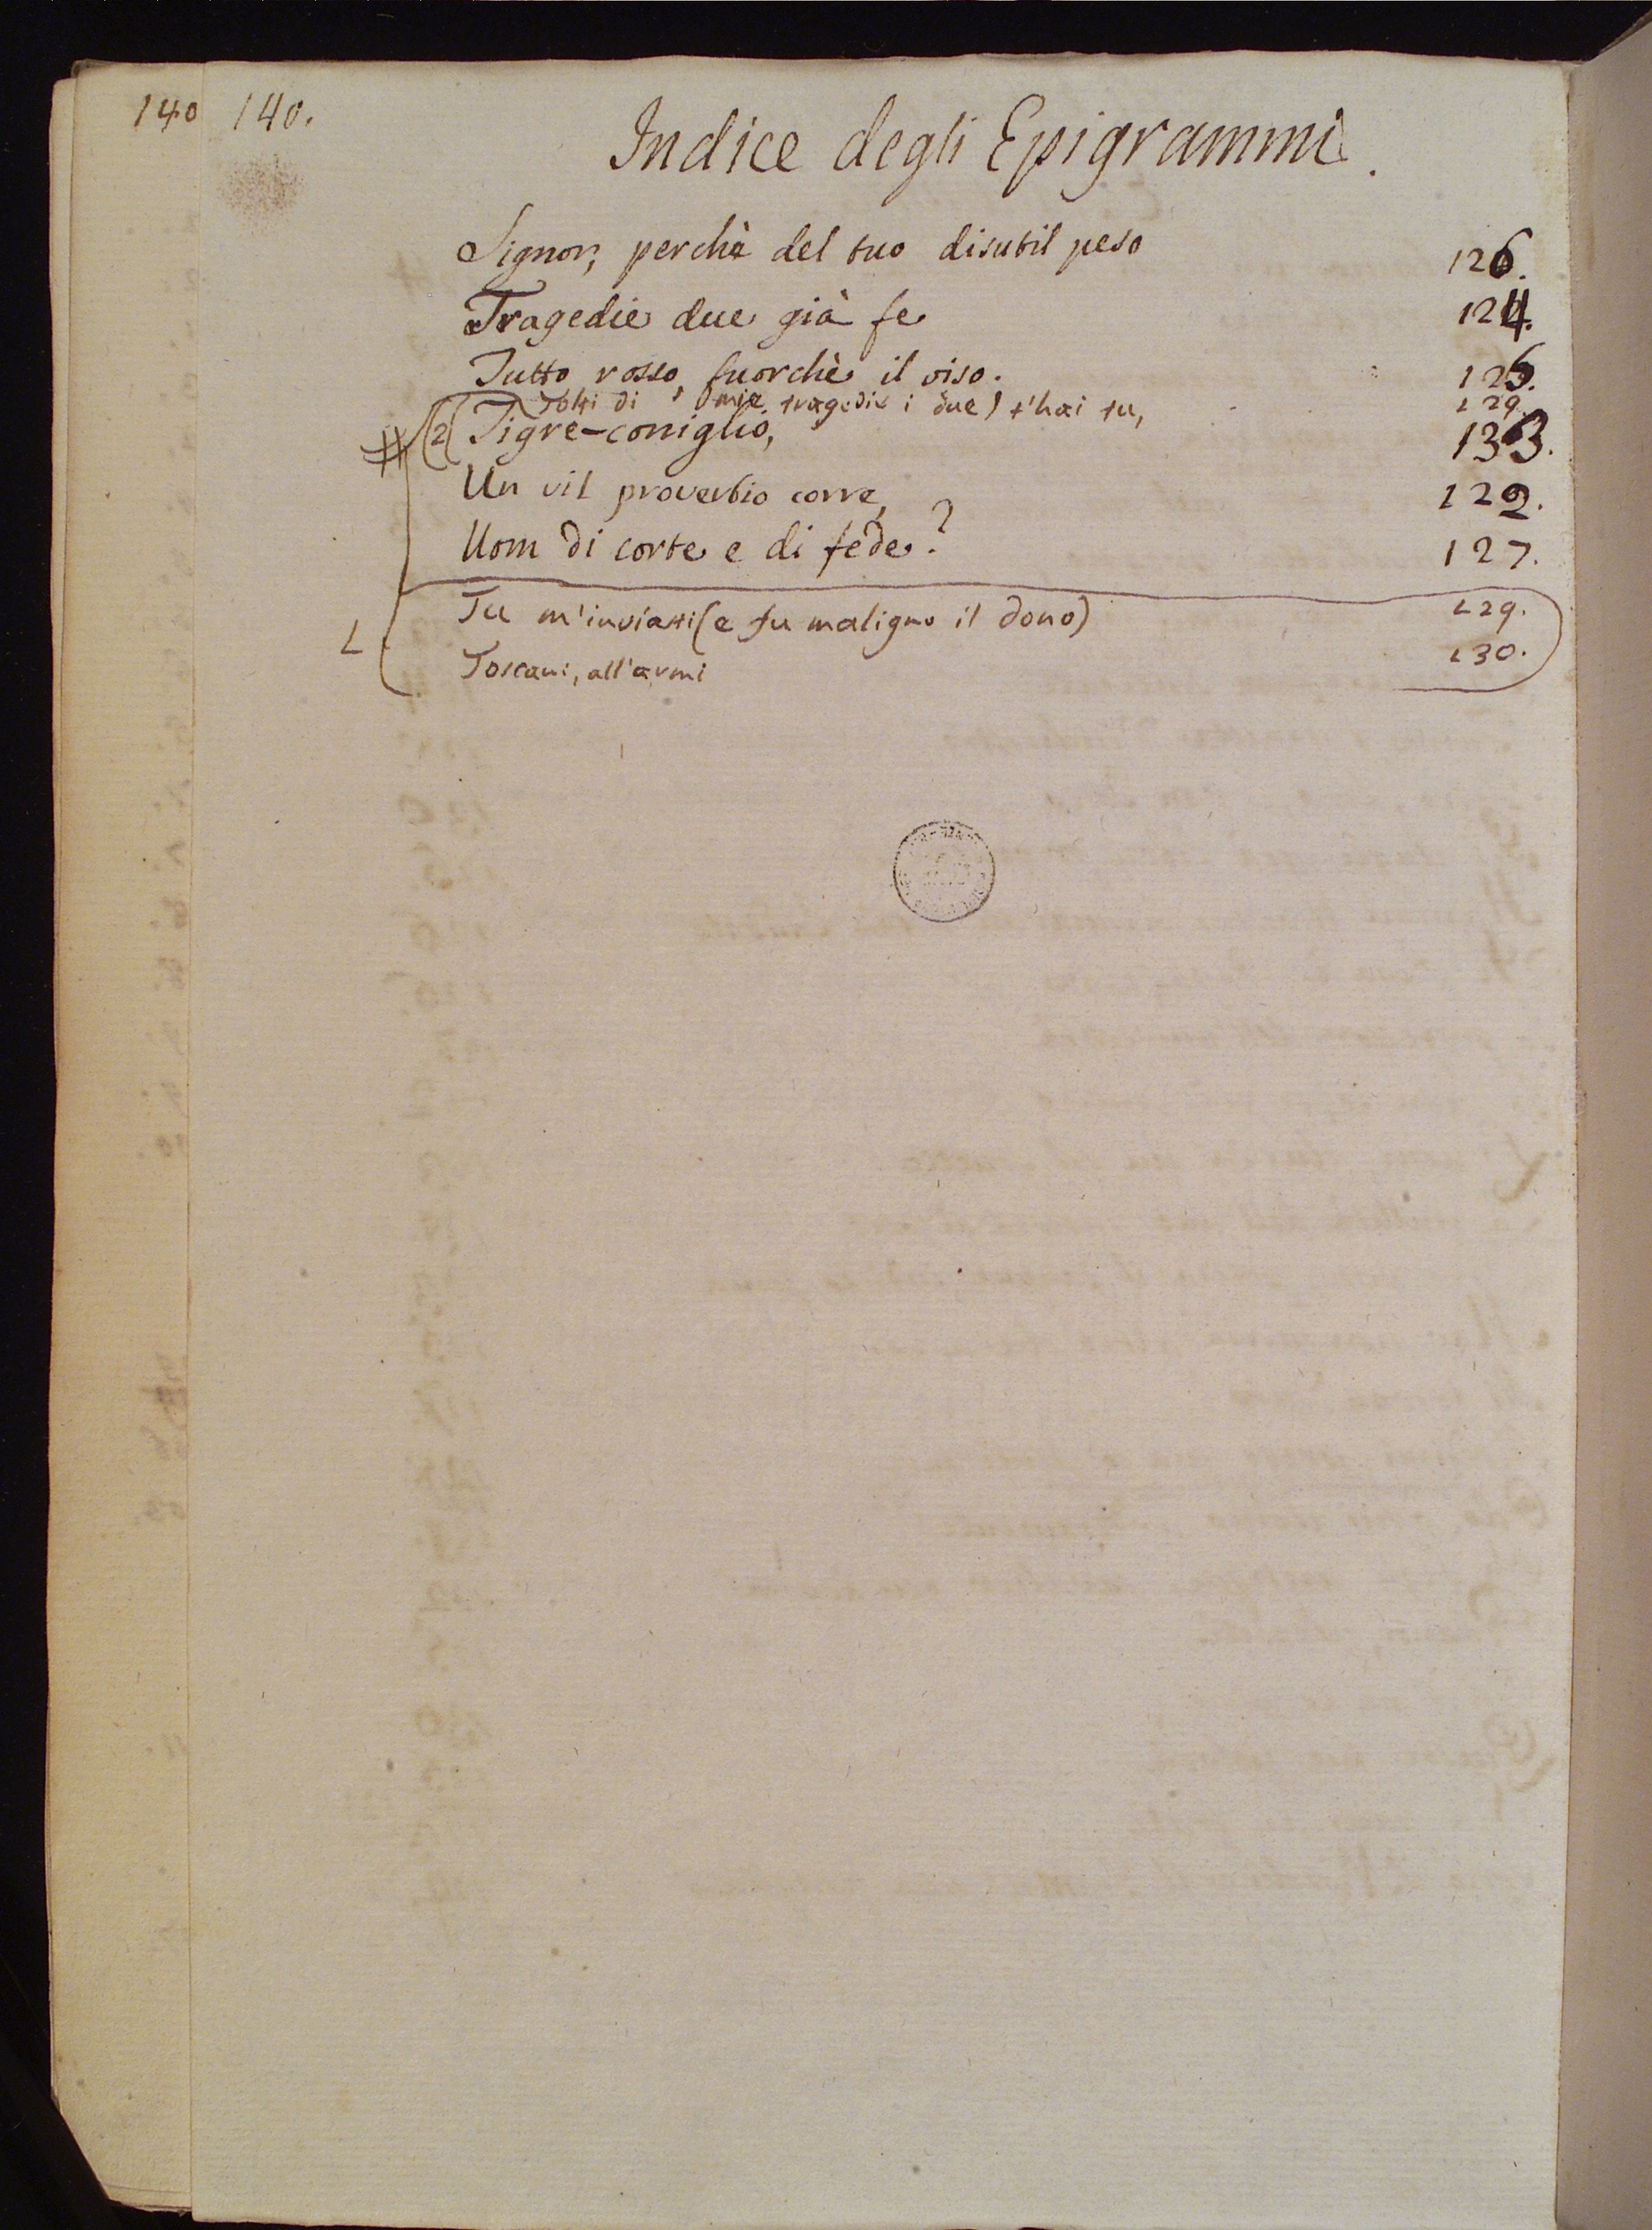 140 140.
Indice degli Epigrammi.
Signor, perchè del tuo disutil peso 126.
Tragedie due già fe 124.
Tutto rosso, fuorchè il viso. 125.
Tolti di mie tragedie i due) t'hai tu, 129.
# (2( Tigre-coniglio, 133.
Un vil proverbio corre, 122.
Uom di corte e di fede? 127.
Tu m'inviasti (e fu maligno il dono) 129.
1 Toscani, all'armi 130.